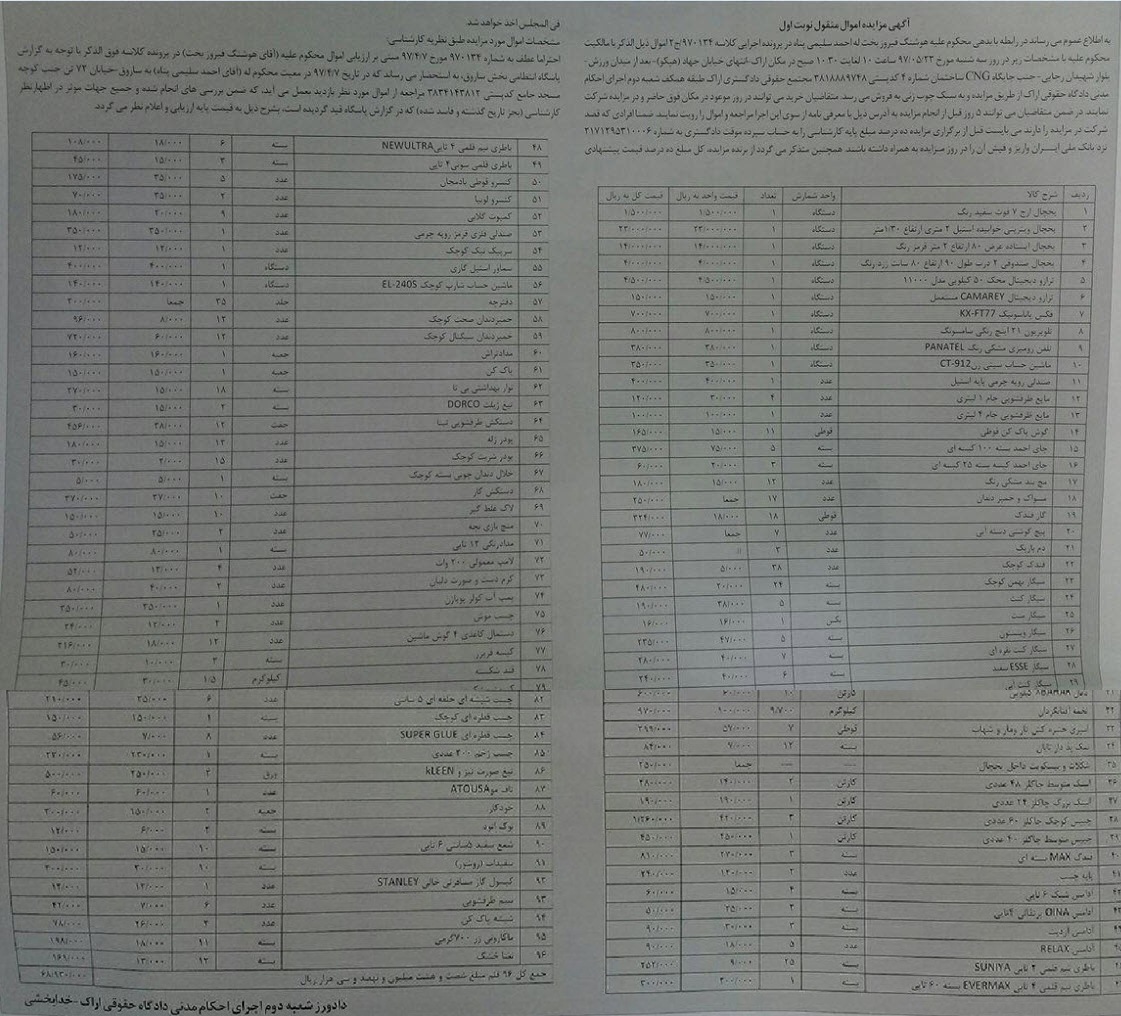 آگهی مزایده اموال منقول نوبت اول
به اطلاع عموم می رساند در رابطه با بدهی محکوم علیه هوشنگ فیروز بخت له احمد سلیمی پناه در پرونده اجرایی کلاسه ۹۷۰۱۳۴/ج۲ اموال ذیل الذکر با مالکیت
محکوم علیه با مشخصات زیر در روز سه شنبه مورخ ۹۷/۰۵/۲۳ ساعت ۱۰ لغایت ۱۰:۳۰ صبح در مکان اراک-انتهای خیابان جهاد (هپکو)-بعد از میدان ورزش-
بلوار شهیدان رجایی- جنب جایگاه CNG ساختمان شماره ۴ کدپستی ۳۸۱۸۸۸۹۷۴۸ مجتمع حقوقی دادگستری اراک طبقه همکف شعبه دوم اجرای احکام
مدنی دادگاه حقوقی اراک از طریق مزایده و به سنگ چوب زنی به فروش می رسد. متقاضیان خرید می توانند در روز موعود در مکان فوق حاضر و در مزایده شرکت
نمایند. در ضمن متقاضیان می توانند ۵ روز قبل از انجام مزایده به آدرس ذیل با معرفی نامه از سوی این اجرا مراجعه و اموال را رویت نمایند. ضمنا افرادی که قصد
شرکت در مزایده را دارند می بایست قبل از برگزاری مزایده ده درصد مبلغ پایه کارشناسی را به حساب سپرده موقت دادگستری به شماره ۲۱۷۱۲۹۵۳۱۰۰۰۶
نزد بانک ملی ایران واریز و فیش آن را در روز مزایده به همراه داشته باشند. همچنین متذکر می گردد از برنده مزایده، کل مبلغ ده درصد قیمت پیشنهادی
ردیف شرح کالا واحد شمارش تعداد قیمت واحد به ریال قیمت کل به ریال
۱ یخچال ارج ۷ فوت سفید رنگ دستگاه ۱ ۱/۵۰۰/۰۰۰ ۱/۵۰۰/۰۰۰
۲ یخچال ویترینی خوابیده استیل ۲ متری ارتفاع ۱/۳۰متر دستگاه ۱ ۲۳/۰۰۰/۰۰۰ ۲۳/۰۰۰/۰۰۰
۳ یخچال ایستاده عرض ۸۰ ارتفاع ۲ متر قرمز رنگ دستگاه ۱ ۱۴/۰۰۰/۰۰۰ ۱۴/۰۰۰/۰۰۰
۴ یخچال صندوقی ۲ درب طول ۹۰ ارتفاع ۸۰ سانت زرد رنگ دستگاه ۱ ۴/۰۰۰/۰۰۰ ۴/۰۰۰/۰۰۰
۵ ترازو دیجیتال محک ۵۰ کیلویی مدل ۱۱۰۰۰ دستگاه ۱ ۴/۵۰۰/۰۰۰ ۴/۵۰۰/۰۰۰
۶ ترازو دیجیتال CAMAREY مستعمل دستگاه ۱ ۱۵۰/۰۰۰ ۱۵۰/۰۰۰
۷ فکس پاناسونیک KX-FT77 دستگاه ۱ ۷۰۰/۰۰۰ ۷۰۰/۰۰۰
۸ تلویزیون ۲۱ اینچ رنگی سامسونگ دستگاه ۱ ۸۰۰/۰۰۰ ۸۰۰/۰۰۰
۹ تلفن رومیزی مشکی رنگ PANATEL دستگاه ۱ ۳۸۰/۰۰۰ ۳۸۰/۰۰۰
۱۰ ماشین حساب سیتی زن CT-912 دستگاه ۱ ۳۵۰/۰۰۰ ۳۵۰/۰۰۰
۱۱ صندلی رویه چرمی پایه استیل عدد ۱ ۴۰۰/۰۰۰ ۴۰۰/۰۰۰
۱۲ مایع ظرفشویی جام ۱ لیتری عدد ۴ ۳۰/۰۰۰ ۱۲۰/۰۰۰
۱۳ مایع ظرفشویی جام ۴ لیتری عدد ۱ ۱۰۰/۰۰۰ ۱۰۰/۰۰۰
۱۴ گوش پاک کن قوطی قوطی ۱۱ ۱۵/۰۰۰ ۱۶۵/۰۰۰
۱۵ چای احمد بسته ۱۰۰ کیسه ای بسته ۵ ۷۵/۰۰۰ ۳۷۵/۰۰۰
۱۶ چای احمد کیسه بسته ۲۵ کیسه ای بسته ۳ ۲۰/۰۰۰ ۶۰/۰۰۰
۱۷ مچ بند مشکی رنگ عدد ۱۲ ۱۵/۰۰۰ ۱۸۰/۰۰۰
۱۸ مسواک و خمیر دندان عدد ۱۷ جمعا ۲۵۰/۰۰۰
۱۹ گاز فندک قوطی ۱۸ ۱۸/۰۰۰ ۳۲۴/۰۰۰
۲۰ پیچ گوشتی دسته آبی عدد ۷ جمعا ۷۷/۰۰۰
۲۱ دم باریک عدد ۳ // ۵۰/۰۰۰
۲۲ فندک کوچک عدد ۳۸ ۵/۰۰۰ ۱۹۰/۰۰۰
۲۳ سیگار بهمن کوچک بسته ۲۴ ۲۰/۰۰۰ ۴۸۰/۰۰۰
۲۴ سیگار کنت بسته ۵ ۳۸/۰۰۰ ۱۹۰/۰۰۰
۲۵ سیگار ست بکس ۱ ۱۶/۰۰۰ ۱۶/۰۰۰
۲۶ سیگار وینستون بسته ۵ ۴۷/۰۰۰ ۲۳۵/۰۰۰
۲۷ سیگار کنت نقره ای بسته ۷ ۴۰/۰۰۰ ۲۸۰/۰۰۰
۲۸ سیگار ESSE سفید بسته ۶ ۴۰/۰۰۰ ۲۴۰/۰۰۰
۲۹ سیگار کنت آبی
کارتن ۱۰ ۶۰/۰۰۰ ۶۰۰/۰۰۰
۳۲ تخمه آفتابگردان کیلوگرم ۹/۷۰۰ ۱۰۰/۰۰۰ ۹۷۰/۰۰۰
۳۳ اسپری حشره کش تار و مار و شهاب قوطی ۷ ۵۷/۰۰۰ ۳۹۹/۰۰۰
۳۴ نمک ید دار تابان بسته ۱۲ ۷/۰۰۰ ۸۴/۰۰۰
۳۵ شکلات و بیسکویت داخل یخچال --- --- جمعا ۲۵۰/۰۰۰
۳۶ اسنک متوسط چاکلز ۴۸ عددی کارتن ۲ ۱۴۰/۰۰۰ ۲۸۰/۰۰۰
۳۷ اسنک بزرگ چاکلز ۲۴ عددی کارتن ۱ ۱۹۰/۰۰۰ ۱۹۰/۰۰۰
۳۸ چیپس کوچک چاکلز ۶۰ عددی کارتن ۳ ۴۲۰/۰۰۰ ۱/۲۶۰/۰۰۰
۳۹ چیپس متوسط چاکلز ۴۰ عددی کارتن ۱ ۴۵۰/۰۰۰ ۴۵۰/۰۰۰
۴۰ فندک MAX بسته ای بسته ۳ ۲۷۰/۰۰۰ ۸۱۰/۰۰۰
۴۱ پایه چسب عدد ۲ ۱۲۰/۰۰۰ ۲۴۰/۰۰۰
۴۲ آدامس شیک ۶ تایی بسته ۴ ۱۵/۰۰۰ ۶۰/۰۰۰
آدامس OINA پرتقالی ۶تایی بسته ۲ ۲۵/۰۰۰ ۵۰/۰۰۰
آدامس اربیت بسته ۳ ۳۰/۰۰۰ ۹۰/۰۰۰
آدامس RELAX عدد ۵ ۱۸/۰۰۰ ۹۰/۰۰۰
باطری نیم قلمی ۲ تایی SUNIYA بسته ۲۵ ۹/۰۰۰ ۲۵۲/۰۰۰
باطری نیم قلمی ۴ تایی EVERMAX بسته ۶۰ تایی بسته ۱ ۳۰۰/۰۰۰ ۳۰۰/۰۰۰
فی المجلس اخذ خواهد شد.
مشخصات اموال مورد مزایده طبق نظریه کارشناسی:
احتراما عطف به شماره ۹۷۰۱۳۴ مورخ ۹۷/۴/۷ مبنی بر ارزیابی اموال محکوم علیه (آقای هوشنگ فیروز بخت) در پرونده کلاسه فوق الذکر با توجه به گزارش
پاسگاه انتظامی بخش ساروق، به استحضار می رساند که در تاریخ ۹۷/۴/۷ در معیت محکوم له (آقای احمد سلیمی پناه) به ساروق-خیابان ۷۳ تن جنب کوچه
مسجد جامع کدپستی ۳۸۳۴۱۴۳۸۱۲ مراجعه از اموال مورد نظر بازدید بعمل می آید، که ضمن بررسی های انجام شده و جمیع جهات موثر در اظهارنظر
کارشناسی (بجز تاریخ گذشته و فاسد شده) که در گزارش پاسگاه قید گردیده است، بشرح ذیل به قیمت پایه ارزیابی و اعلام نظر می گردد.
۴۸ باطری نیم قلمی ۴ تایی NEWULTRA بسته ۶ ۱۸/۰۰۰ ۱۰۸/۰۰۰
۴۹ باطری قلمی سونی ۲ تایی بسته ۳ ۱۵/۰۰۰ ۴۵/۰۰۰
۵۰ کنسرو قوطی بادمجان عدد ۵ ۳۵/۰۰۰ ۱۷۵/۰۰۰
۵۱ کنسرو لوبیا عدد ۲ ۳۵/۰۰۰ ۷۰/۰۰۰
۵۲ کمپوت گلابی عدد ۹ ۲۰/۰۰۰ ۱۸۰/۰۰۰
۵۳ صندلی فنری قرمز رویه چرمی عدد ۱ ۳۵۰/۰۰۰ ۳۵۰/۰۰۰
۵۴ سرپیک نیک کوچک عدد ۱ ۱۲/۰۰۰ ۱۲/۰۰۰
۵۵ سماور استیل گازی دستگاه ۱ ۴۰۰/۰۰۰ ۴۰۰/۰۰۰
۵۶ ماشین حساب شارپ کوچک EL-240S دستگاه ۱ ۱۴۰/۰۰۰ ۱۴۰/۰۰۰
۵۷ دفترچه جلد ۳۵ جمعا ۳۰۰/۰۰۰
۵۸ خمیردندان صحت کوچک عدد ۱۲ ۸/۰۰۰ ۹۶/۰۰۰
۵۹ خمیردندان سیگنال کوچک عدد ۱۲ ۶۰/۰۰۰ ۷۲۰/۰۰۰
۶۰ مدادتراش جعبه ۱ ۱۶۰/۰۰۰ ۱۶۰/۰۰۰
۶۱ پاک کن جعبه ۱ ۱۵۰/۰۰۰ ۱۵۰/۰۰۰
۶۲ نوار بهداشتی پی تا بسته ۱۸ ۱۵/۰۰۰ ۲۷۰/۰۰۰
۶۳ تیغ ژیلت DORCO بسته ۲ ۱۵/۰۰۰ ۳۰/۰۰۰
۶۴ دستکش ظرفشویی تینا جفت ۱۲ ۳۸/۰۰۰ ۴۵۶/۰۰۰
۶۵ پودر ژله عدد ۱۲ ۱۵/۰۰۰ ۱۸۰/۰۰۰
۶۶ پودر شربت کوچک عدد ۱۵ ۲/۰۰۰ ۳۰/۰۰۰
۶۷ خلال دندان چوبی بسته کوچک بسته ۱ ۵/۰۰۰ ۵/۰۰۰
۶۸ دستکش کار جفت ۱۰ ۳۷/۰۰۰ ۳۷۰/۰۰۰
۶۹ لاک غلط گیر عدد ۱۰ ۱۵/۰۰۰ ۱۵۰/۰۰۰
۷۰ منچ بازی بچه عدد ۲ ۲۵/۰۰۰ ۵۰/۰۰۰
۷۱ مدادرنگی ۱۲ تایی بسته ۱ ۸۰/۰۰۰ ۸۰/۰۰۰
۷۲ لامپ معمولی ۲۰۰ وات عدد ۴ ۱۳/۰۰۰ ۵۲/۰۰۰
۷۳ کرم دست و صورت دلبان عدد ۲ ۴۰/۰۰۰ ۸۰/۰۰۰
۷۴ پمپ آب کولر پویازن عدد ۱ ۳۵۰/۰۰۰ ۳۵۰/۰۰۰
۷۵ چسب موش عدد ۲ ۱۲/۰۰۰ ۲۴/۰۰۰
۷۶ دستمال کاغذی ۴ گوش ماشین عدد ۱۲ ۱۸/۰۰۰ ۲۱۶/۰۰۰
۷۷ کیسه فریزر بسته ۳ ۱۰/۰۰۰ ۳۰/۰۰۰
۷۸ قند شکسته کیلوگرم ۱/۵ ۳۰/۰۰۰ ۴۵/۰۰۰
۷۹
۸۲ چسب شیشه ای حلقه ای ۵ سانتی عدد ۶ ۳۵/۰۰۰ ۲۱۰/۰۰۰
۸۳ چسب قطره ای کوچک بسته ۱ ۱۵۰/۰۰۰ ۱۵۰/۰۰۰
۸۴ چسب قطره ای SUPER GLUE عدد ۸ ۷/۰۰۰ ۵۶/۰۰۰
۸۵ چسب زخم ۲۰۰ عددی بسته ۱ ۲۳۰/۰۰۰ ۲۳۰/۰۰۰
۸۶ تیغ صورت تیز و kLEEN ورق ۲ ۲۵۰/۰۰۰ ۵۰۰/۰۰۰
۸۷ تاف مو ATOUSA عدد ۱ ۶۰/۰۰۰ ۶۰/۰۰۰
۸۸ خودکار جعبه ۲ ۱۵۰/۰۰۰ ۳۰۰/۰۰۰
۸۹ نوک اتود بسته ۲ ۶/۰۰۰ ۱۲/۰۰۰
۹۰ شمع سفید ۵سانتی ۶ تایی بسته ۱۰ ۱۵/۰۰۰ ۱۵۰/۰۰۰
۹۱ سفیدآب (روشور) بسته ۱۰ ۳۰/۰۰۰ ۳۰۰/۰۰۰
۹۲ کپسول گاز مسافرتی خالی STANLEY عدد ۱ ۱۲/۰۰۰ ۱۲/۰۰۰
۹۳ سیم ظرفشویی عدد ۶ ۷/۰۰۰ ۴۲/۰۰۰
۹۴ شیشه پاک کن عدد ۳ ۲۶/۰۰۰ ۷۸/۰۰۰
۹۵ ماکارونی زر ۷۰۰گرمی بسته ۱۱ ۱۸/۰۰۰ ۱۹۸/۰۰۰
۹۶ نعنا خشک بسته ۱۲ ۱۳/۰۰۰ ۱۶۹/۰۰۰
جمع کل ۹۶ قلم مبلغ شصت و هشت میلیون و نهصد و سی هزار ریال ۶۸/۹۳۰/۰۰۰
دادورز شعبه دوم اجرای احکام مدنی دادگاه حقوقی اراک -خدابخشی